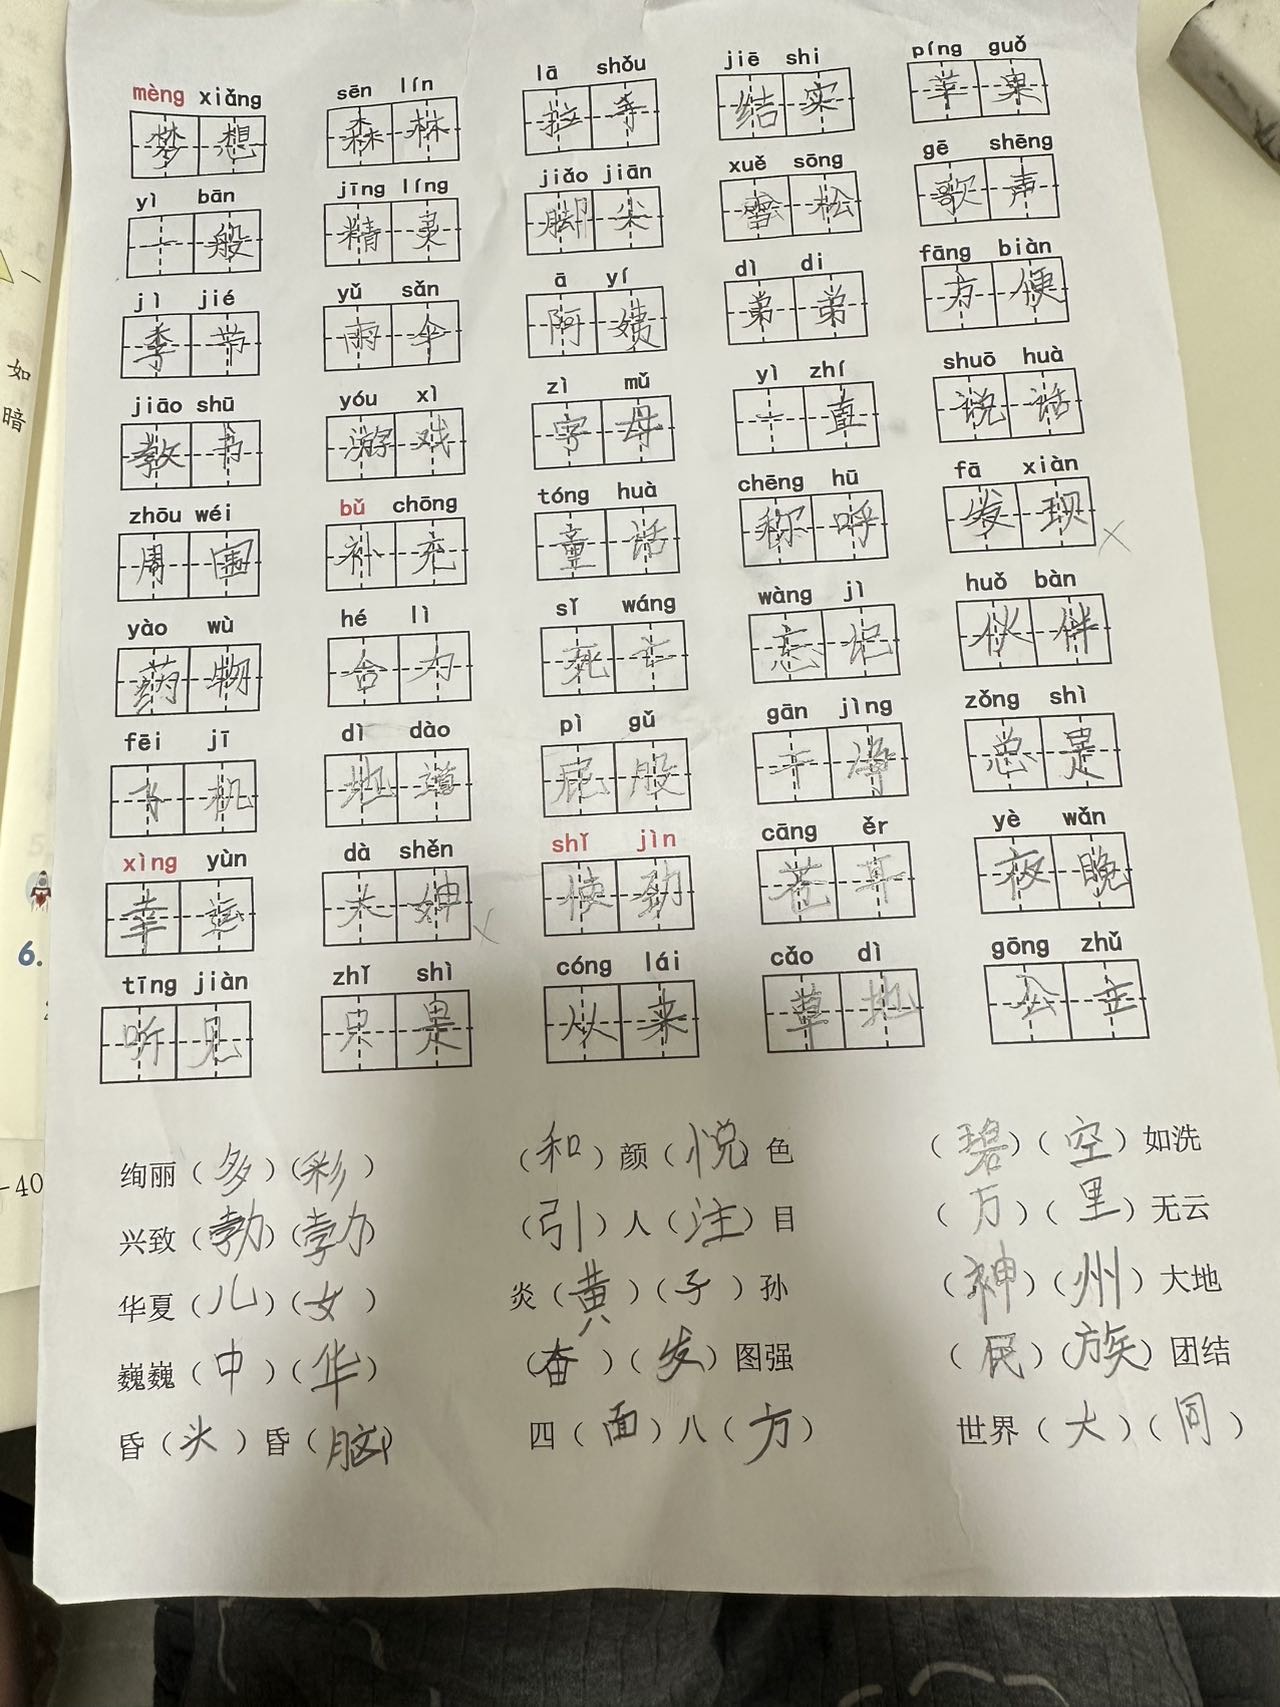 mèng xiǎng sēn lín lā shǒu jiē shi píng guǒ
梦想 森林 拉手 结实 苹果
yì bān jīng líng jiǎo jiān xuě sōng gē shēng
一般 精灵 脚尖 雪松 歌声
jì jié yǔ sǎn ā yí dì di fāng biàn
季节 雨伞 阿姨 弟弟 方便
jiāo shū yóu xì zì mǔ yì zhí shuō huà
教书 游戏 字母 一直 说话
zhōu wéi bǔ chōng tóng huà chēng hū fā xiàn
周围 补充 童话 称呼 发现
yào wù hé lì sǐ wáng wàng jì huǒ bàn
药物 合力 死亡 忘记 伙伴
fēi jī dì dào pì gǔ gān jìng zǒng shì
飞机 地道 屁股 干净 总是
xìng yùn dà shěn shǐ jìn cāng ěr yè wǎn
幸运 大婶 使劲 苍耳 夜晚
tīng jiàn zhǐ shì cóng lái cǎo dì gōng zhǔ
听见 只是 从来 草地 公主
绚丽（多）（彩） （和）颜（悦）色 （碧）（空）如洗
兴致（勃）（勃） （引）人（注）目 （万）（里）无云
华夏（儿）（女） 炎（黄）（子）孙 （神）（州）大地
巍巍（中）（华） （奋）（发）图强 （民）（族）团结
昏（头）昏（脑） 四（面）八（方） 世界（大）（同）
如
暗
6.
-40